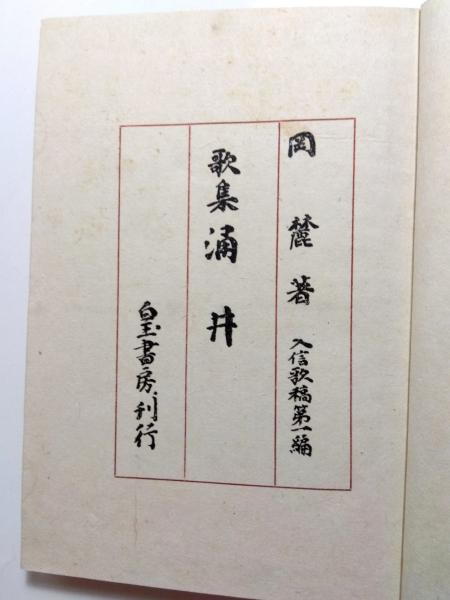 岡麓著 入信歌稿第一編
歌集涌井
白玉書房刊行